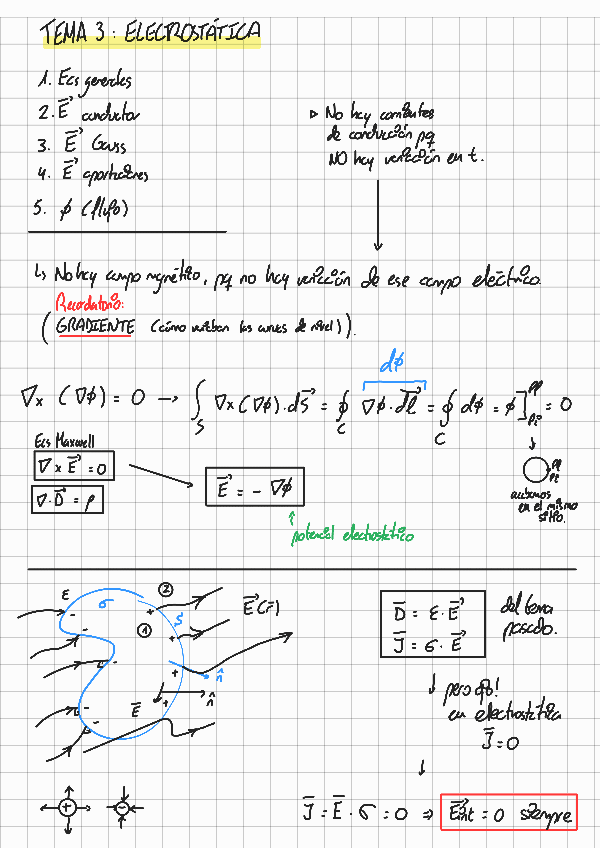 TEMA 3: ELECTROSTÁTICA
1. Ecs generales
2. E⃗ conductor
3. E⃗ Gauss
4. E⃗ aportaciones
5. φ (flujo)
▷ No hay corrientes
de conducción pq
NO hay variación en t.
↳ No hay campo magnético, pq no hay variación de ese campo eléctrico.
Recordatorio:
(GRADIENTE (cómo varían las curvas de nivel)).
dφ
∇× (∇φ) = 0 → ∫_S ∇×(∇φ)·dS⃗ = ∮_C ∇φ·dl⃗ = ∮_C dφ = φ]_{Pi}^{Pf} = 0
Ecs Maxwell
∇ × E⃗ = 0
∇·D⃗ = ρ
E⃗ = - ∇φ
↑ potencial electrostático
Pf
Pi
acabamos
en el mismo
sitio.
ε
σ
②
①
S
E⃗(r⃗)
n̂
E̅
n̂
D̅ = ε·E⃗
J̅ = σ·E⃗
del tema
pasado.
↓ pero ojo!
en electrostática
J̅=0
J̅ = E̅·σ = 0 ⇒ E⃗int = 0 siempre